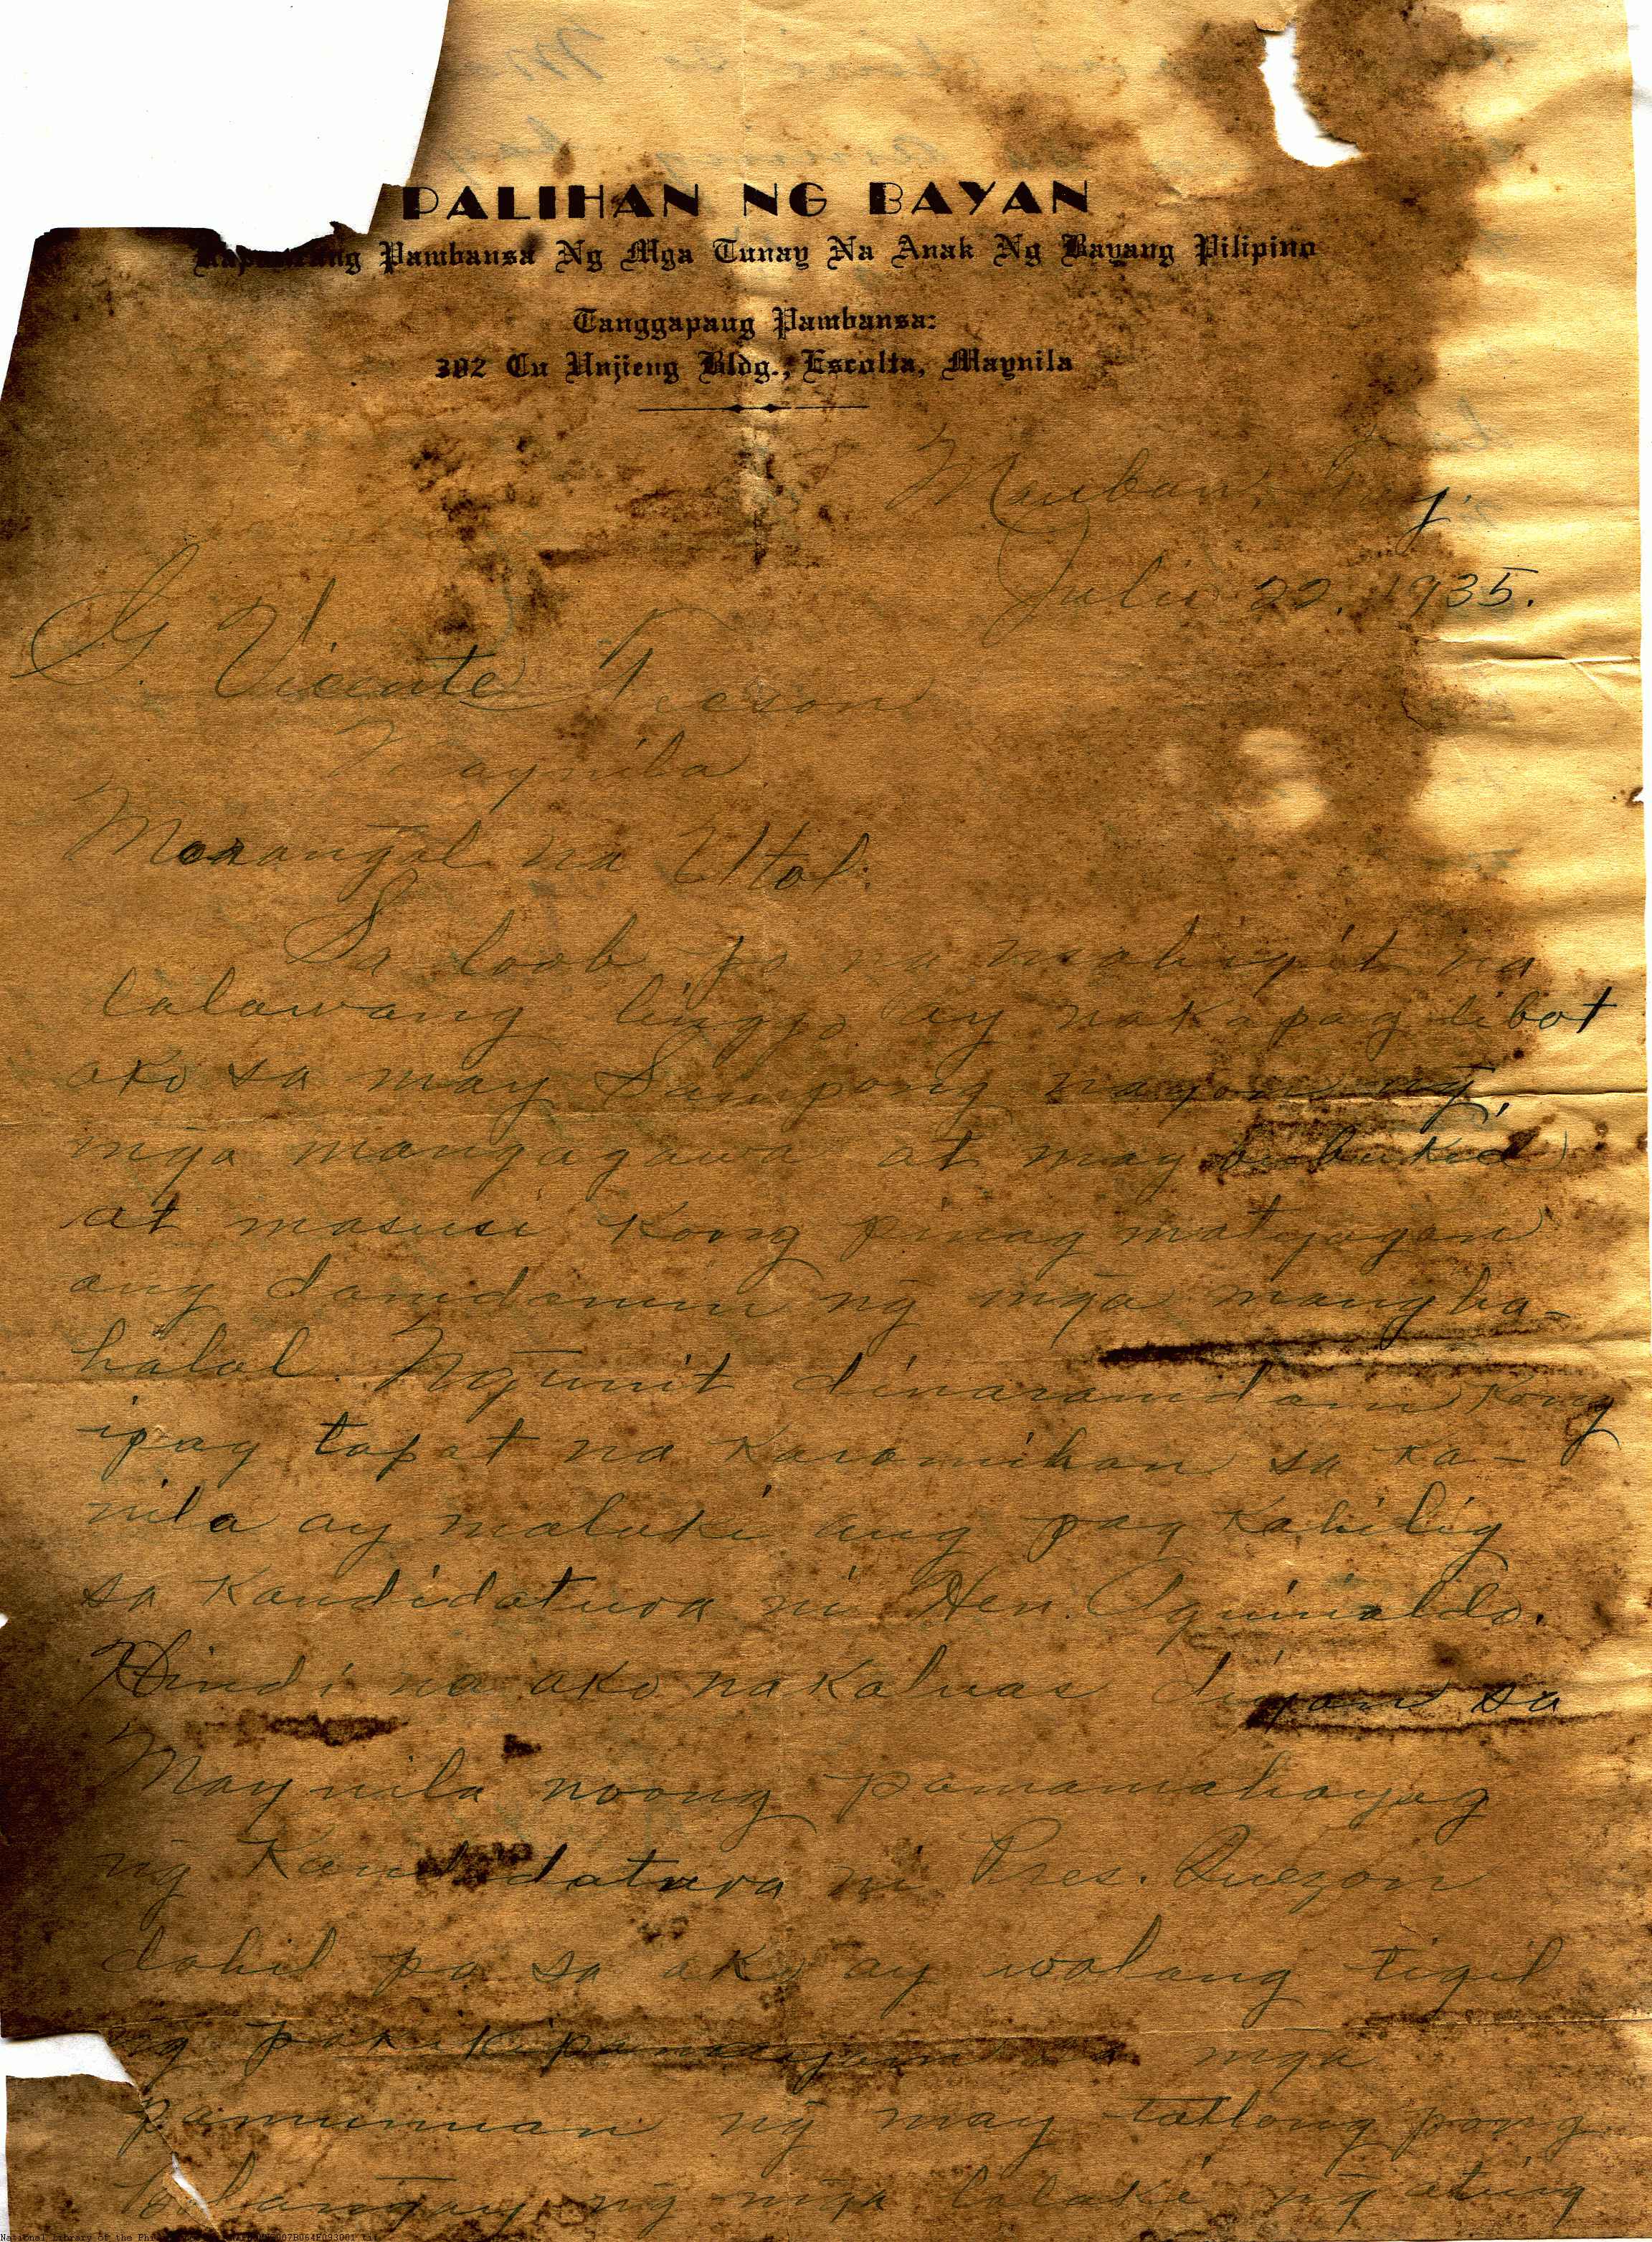 PALIHAN NG BAYAN
Pambansa Ng Mga Tunay Na Anak Ng Bayang Pilipino
Tanggapang Pambansa:
302 Cu Unjieng Bldg., Escolta, Maynila
Mauban,
Julio 22, 1935.
G. Vicente Tecson
Maynila
Marangal na Utol:
Sa loob po na mahigit na
lalawang linggo ay nakapag libot
ako sa may Sampong nayon ng̃
mg̃a mangagawa at may bubukid
at masusi kong pinag matyagan
ang damdamin ng̃ mg̃a mangha-
halal. Ng̃unit dinaramdam kong
ipag tapat na karamihan sa ka-
nila ay malaki ang pag kahilig
sa kandidatura ni Hen. Aguinaldo.
Hindi na ako nakaluas diyan sa
Maynila noong pamamahayag
ng̃ Kandidatura ni Pres. Quezon
dahil po sa ako ay walang tigil
ng pakikipanayam sa mg̃a
pamunuan ng̃ may tatlong pong
balang̃ay ng̃ mg̃a lalaki ng̃ ating